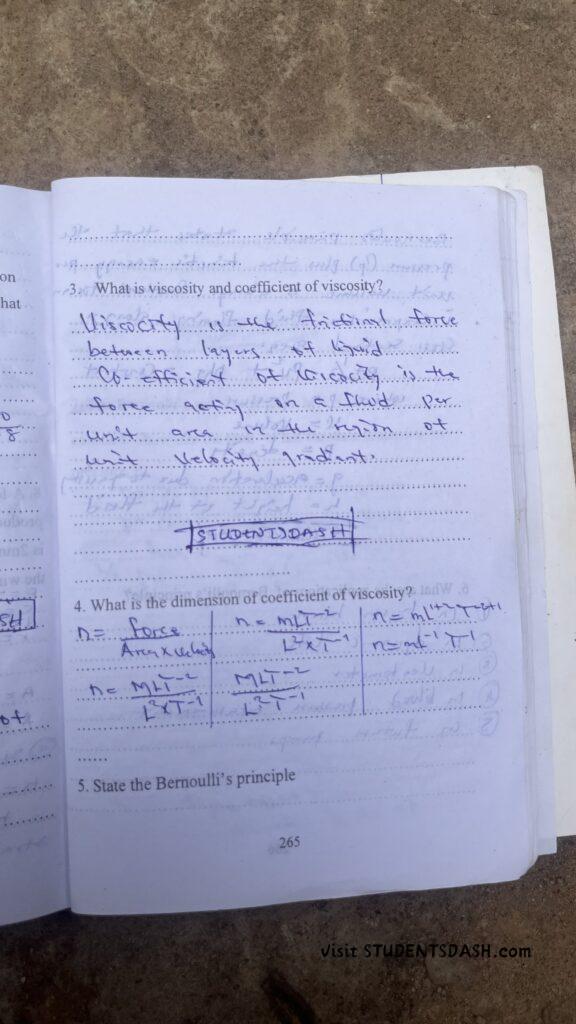 on
hat
3. What is viscosity and coefficient of viscosity?
Viscocity is the frictional force
between layers of liquid
Co-efficient of Viscocity is the
force acting on a fluid per
unit area in the region of
unit velocity gradient.
STUDENTSDASH
4. What is the dimension of coefficient of viscosity?
n = force
Area x velocity
n = MLT⁻²
L² x T⁻¹
n = MLT⁻²
L² x T⁻¹
MLT⁻²
L² T⁻¹
n = mL¹⁺² T⁻²⁺¹
n = mL⁻¹ T⁻¹
SH
of
5. State the Bernoulli's principle
265
Visit STUDENTSDASH.com